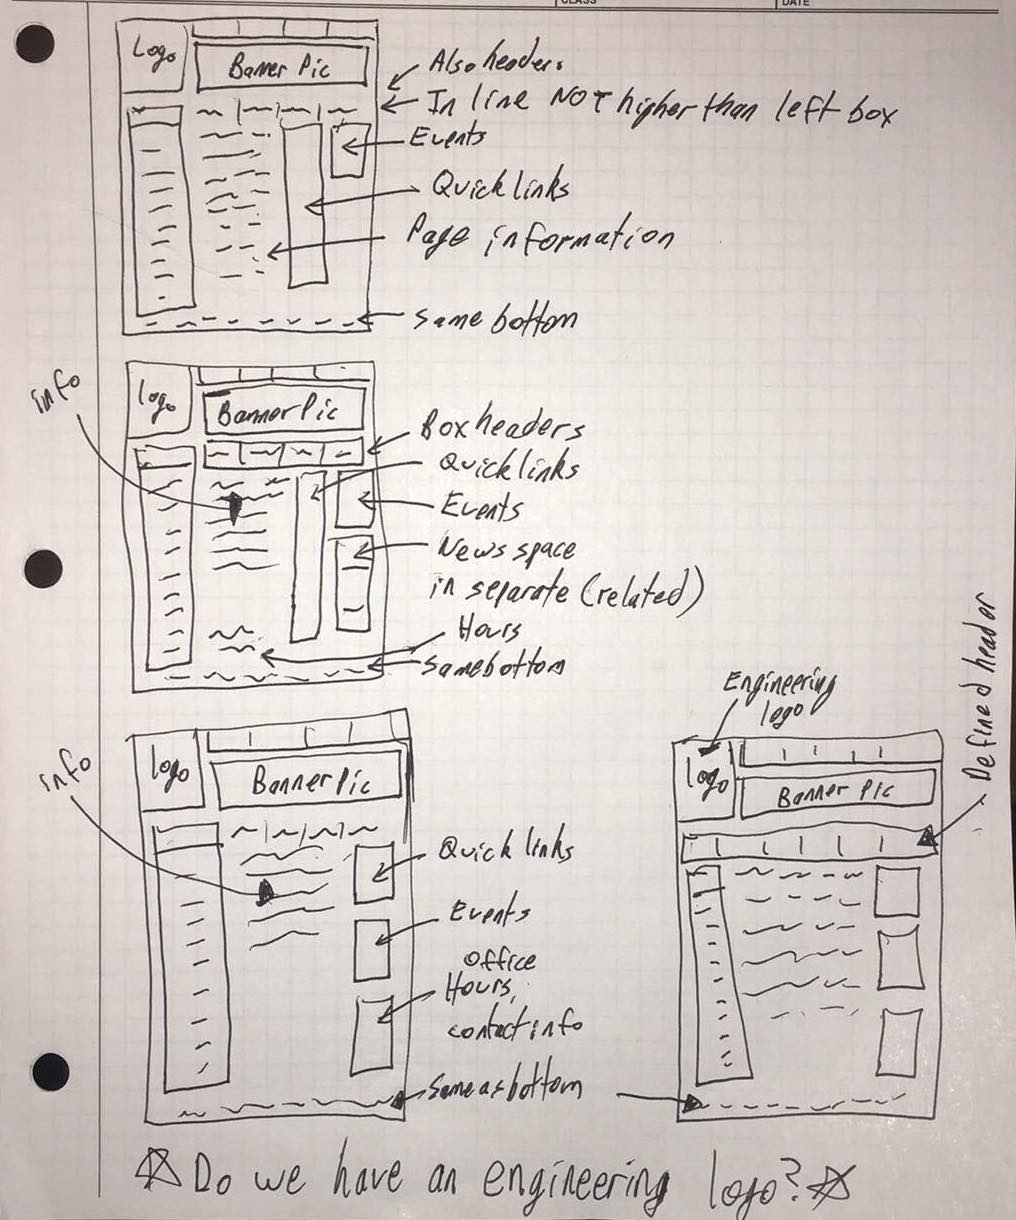 CLASS
DATE
Logo
Banner Pic
Also headers
In line NOT higher than left box
Events
Quick links
Page information
Same bottom
info
logo
Banner Pic
Box headers
Quick links
Events
News space
in separate (related)
Hours
Same bottom
info
logo
Banner Pic
Quick links
Events
Office
Hours,
contact info
Same as bottom
Engineering
logo
Defined header
logo
Banner Pic
Do we have an engineering logo?